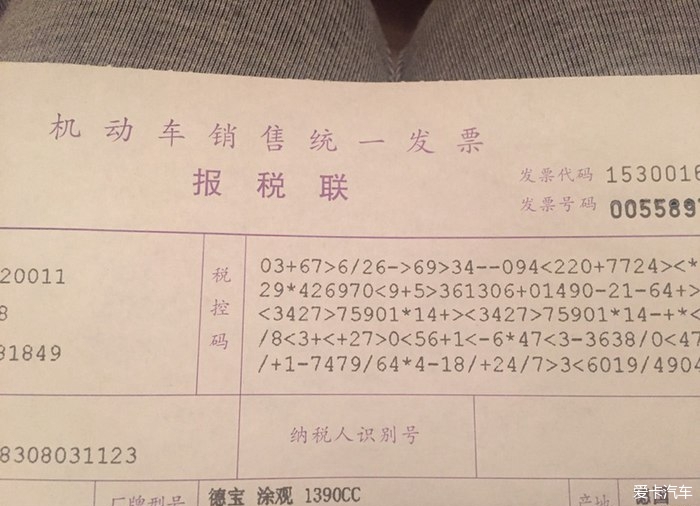 机动车销售统一发票
报税联
发票代码 1530016
发票号码 005589
20011
8
81849
税控码
03+67>6/26->69>34--094<220+7724><*
29*426970<9+5>361306+01490-21-64+>
<3427>75901*14+><3427>75901*14-+*<
/8<3+<+27>0<56+1<-6*47<3-3638/0<47
/+1-7479/64*4-18/+24/7>3<6019/4904
8308031123
纳税人识别号
厂牌型号 德宝 涂观 1390CC
产地 德国
爱卡汽车